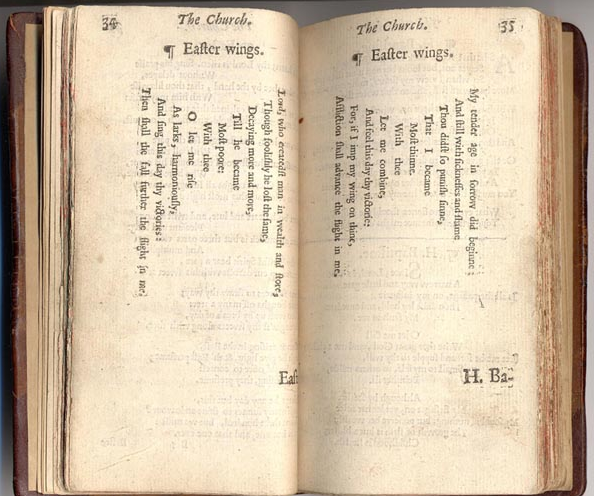 34
The Church.
¶ Eaſter wings.
Lord, who createdſt man in wealth and ſtore,
Though fooliſhly he loſt the ſame,
Decaying more and more,
Till he became
Moſt poore:
With thee
O let me riſe
As larks, harmoniouſly,
And ſing this day thy victories:
Then ſhall the fall further the flight in me.
Eaſ
The Church.
35
¶ Eaſter wings.
My tender age in ſorrow did beginne:
And ſtill with ſickneſſes and ſhame
Thou didſt ſo puniſh ſinne,
That I became
Moſt thinne.
With thee
Let me combine,
And feel this day thy victorie:
For, if I imp my wing on thine,
Affliction ſhall advance the flight in me.
H. Ba-